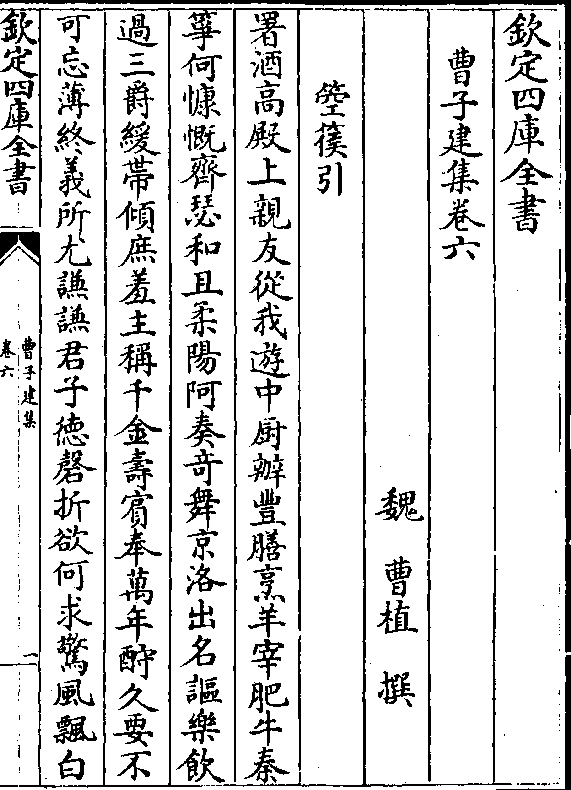 欽定四庫全書
曹子建集卷六
魏 曹植 撰
箜篌引
署酒高殿上親友從我遊中厨辦豐膳烹羊宰肥牛秦
箏何慷慨齊瑟和且柔陽阿奏竒舞京洛出名謳樂飲
過三爵緩帶傾庶羞主稱千金壽賓奉萬年酧久要不
可忘薄終義所尤謙謙君子徳磬折欲何求驚風飄白
欽定四庫全書
曹子建集
卷六
一